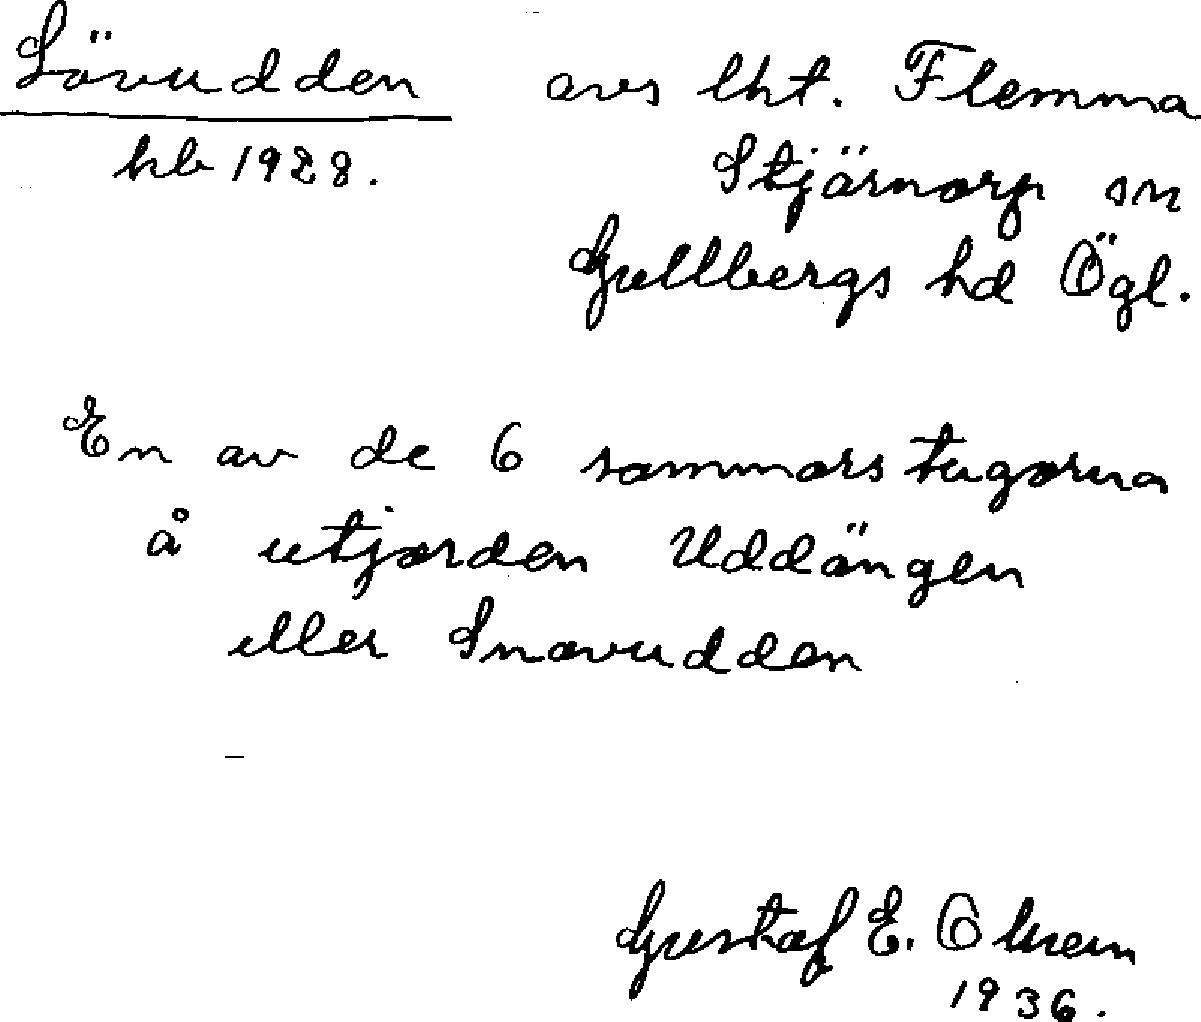 Lövudden avs lht. Flemma
hb 1928. Stjärnorp sn
Gullbergs hd Ögl.
En av de 6 sommarstugorna
å utjorden Uddängen
eller Snavudden
Gustaf E.
1936.